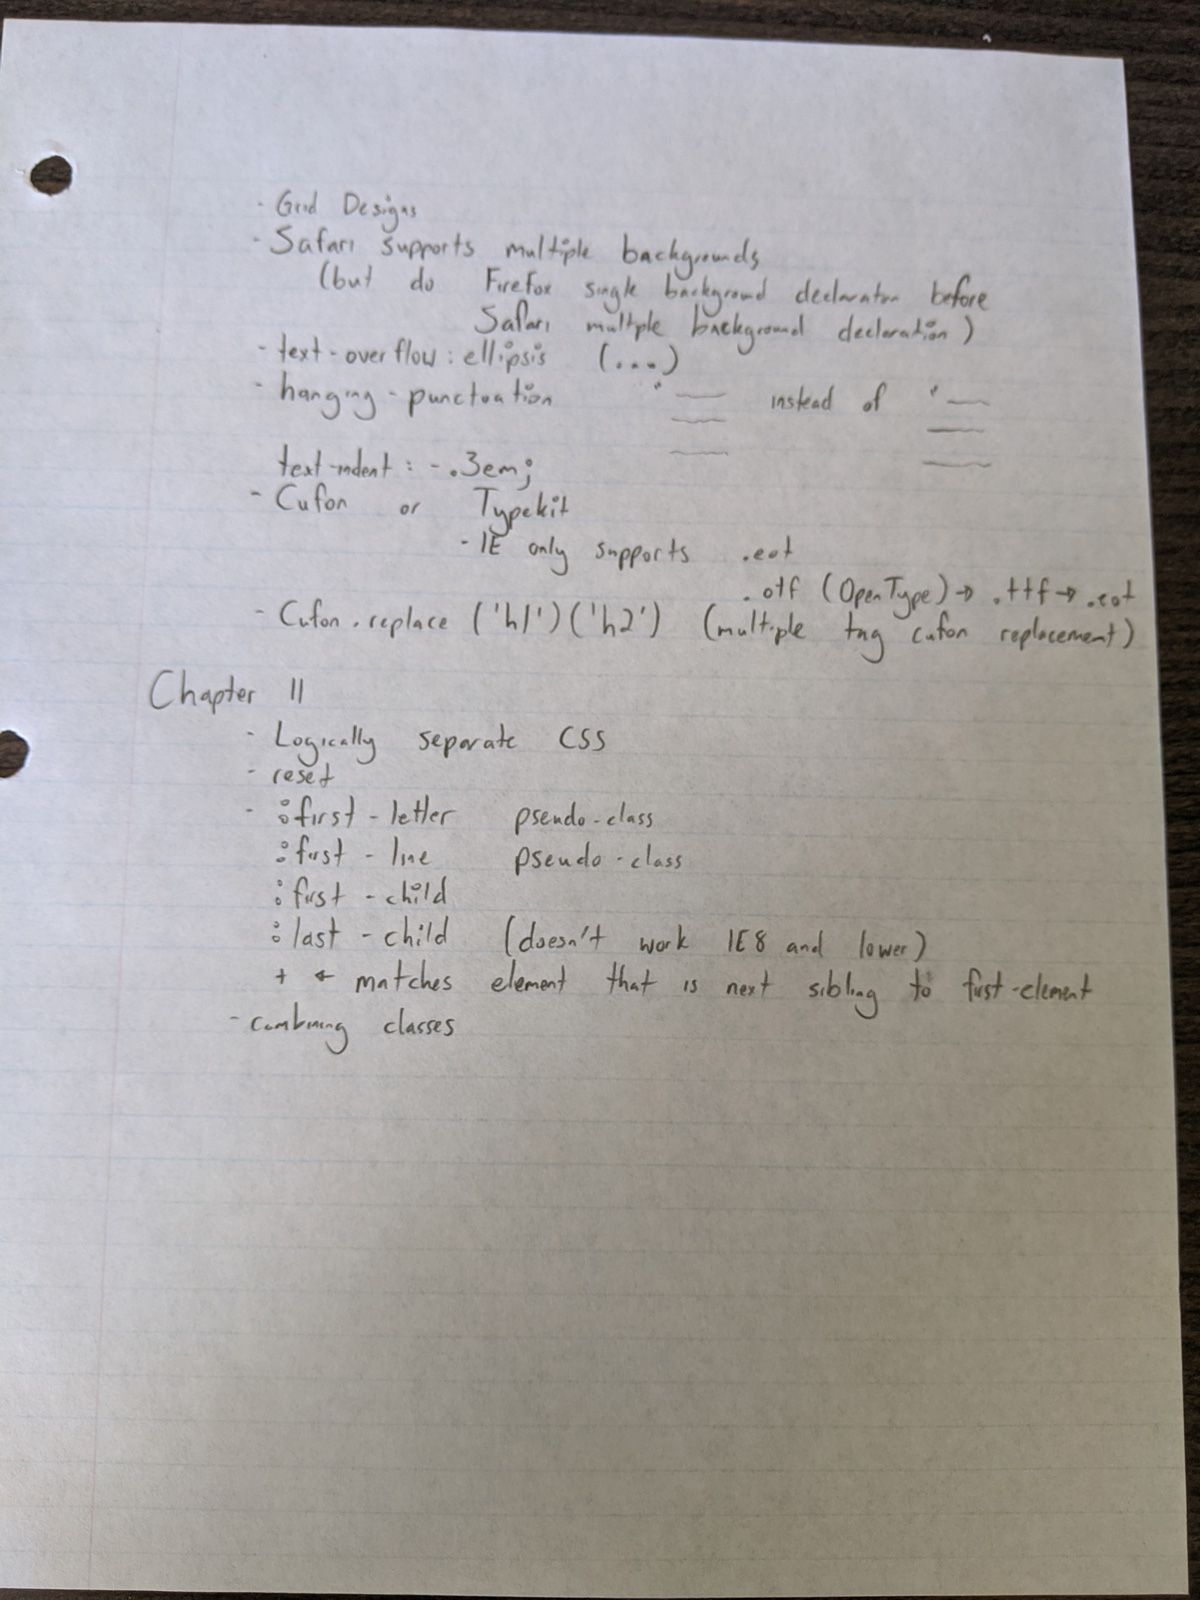 - Grid Designs
- Safari supports multiple backgrounds
(but do Firefox single background declaration before
Safari multiple background declaration)
- text-overflow: ellipsis (...)
- hanging-punctuation ' instead of '
text-indent: -.3em;
- Cufon or Typekit
- IE only supports .eot
.otf (OpenType) → .ttf → .eot
- Cufon.replace ('h1')('h2') (multiple tag cufon replacement)
Chapter 11
- Logically separate CSS
- reset
- :first-letter pseudo-class
:first-line pseudo-class
:first-child
:last-child (doesn't work IE8 and lower)
+ ← matches element that is next sibling to first-element
- combining classes